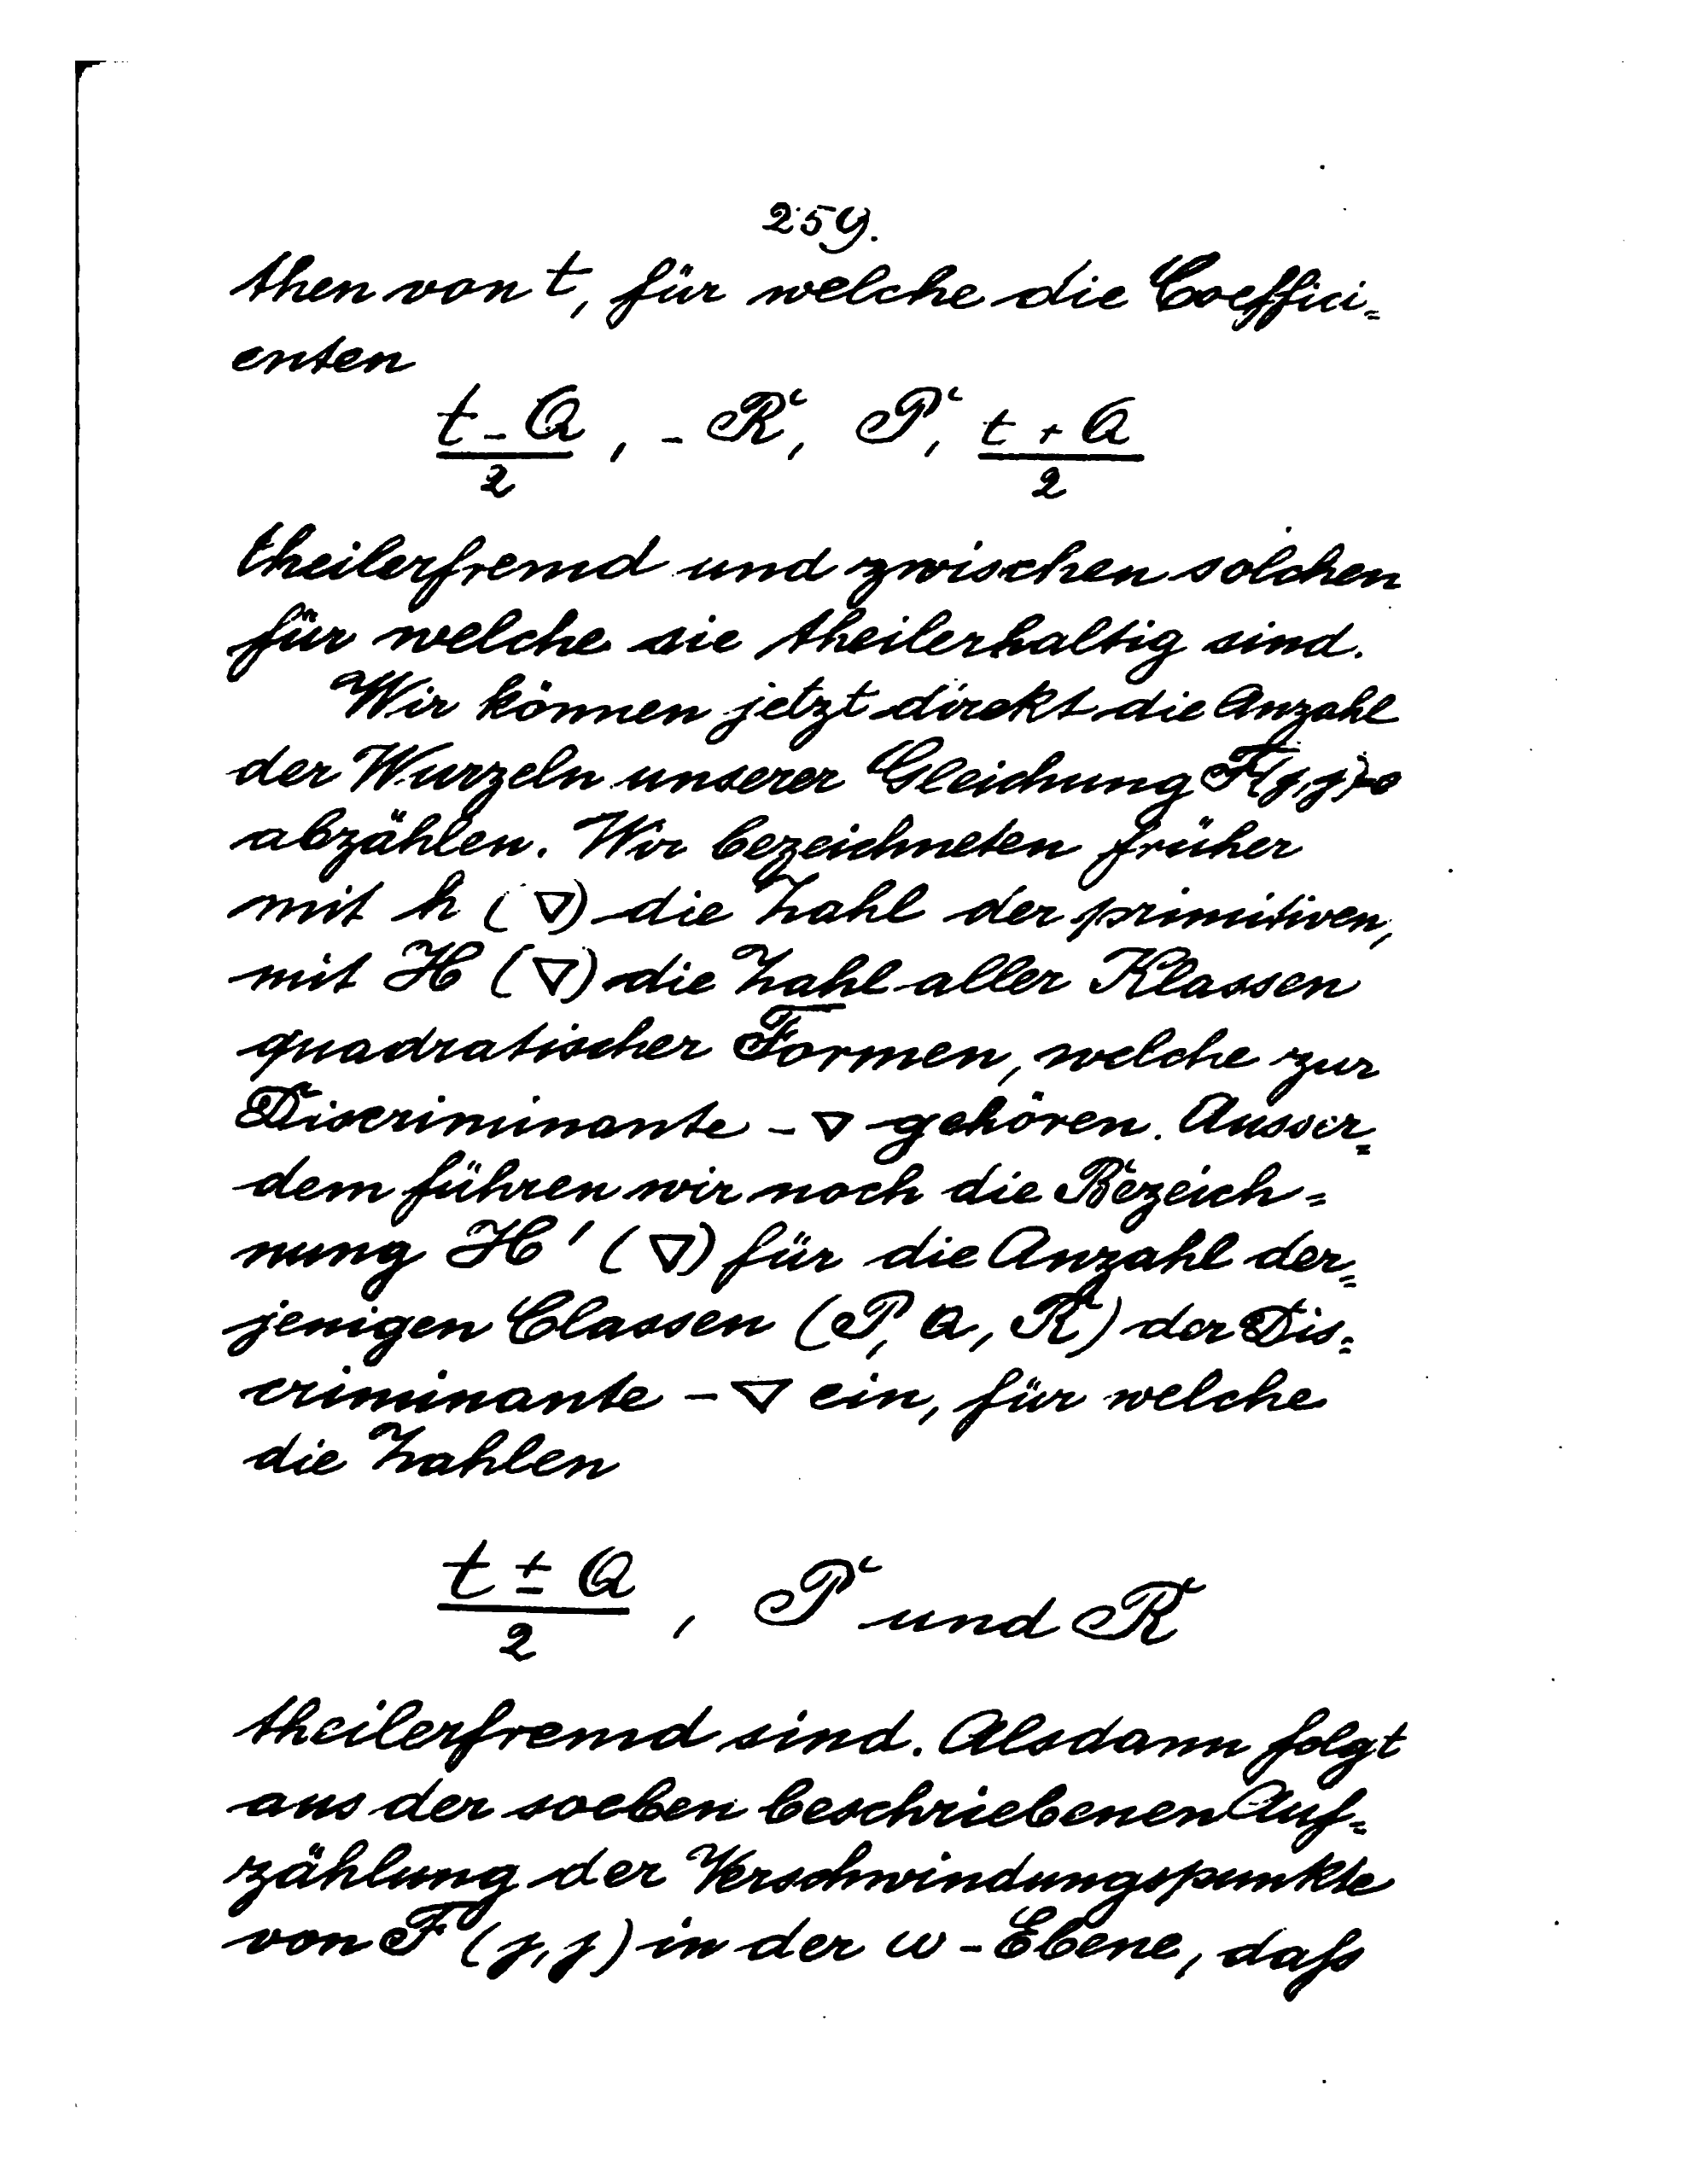 259.
then von t, für welche die Coeffici=
enten
(t - Q)/2, - R, P, (t + Q)/2
theilerfremd und zwischen solchen
für welche sie theilerhaltig sind.
Wir können jetzt direkt die Anzahl
der Wurzeln unserer Gleichung F(j,j)=0
abzählen. Wir bezeichneten früher
mit h (∇) die Zahl der primitiven,
mit H (∇) die Zahl aller Klassen
quadratischer Formen, welche zur
Discriminante - ∇ gehören. Ausser=
dem führen wir noch die Bezeich=
nung H' (∇) für die Anzahl der=
jenigen Classen (P, Q, R) der Dis=
criminante - ∇ ein, für welche
die Zahlen
(t ± Q)/2, P und R
theilerfremd sind. Alsdann folgt
aus der soeben beschriebenen Auf=
zählung der Verschwindungspunkte
von F (j,j) in der ω - Ebene, daß